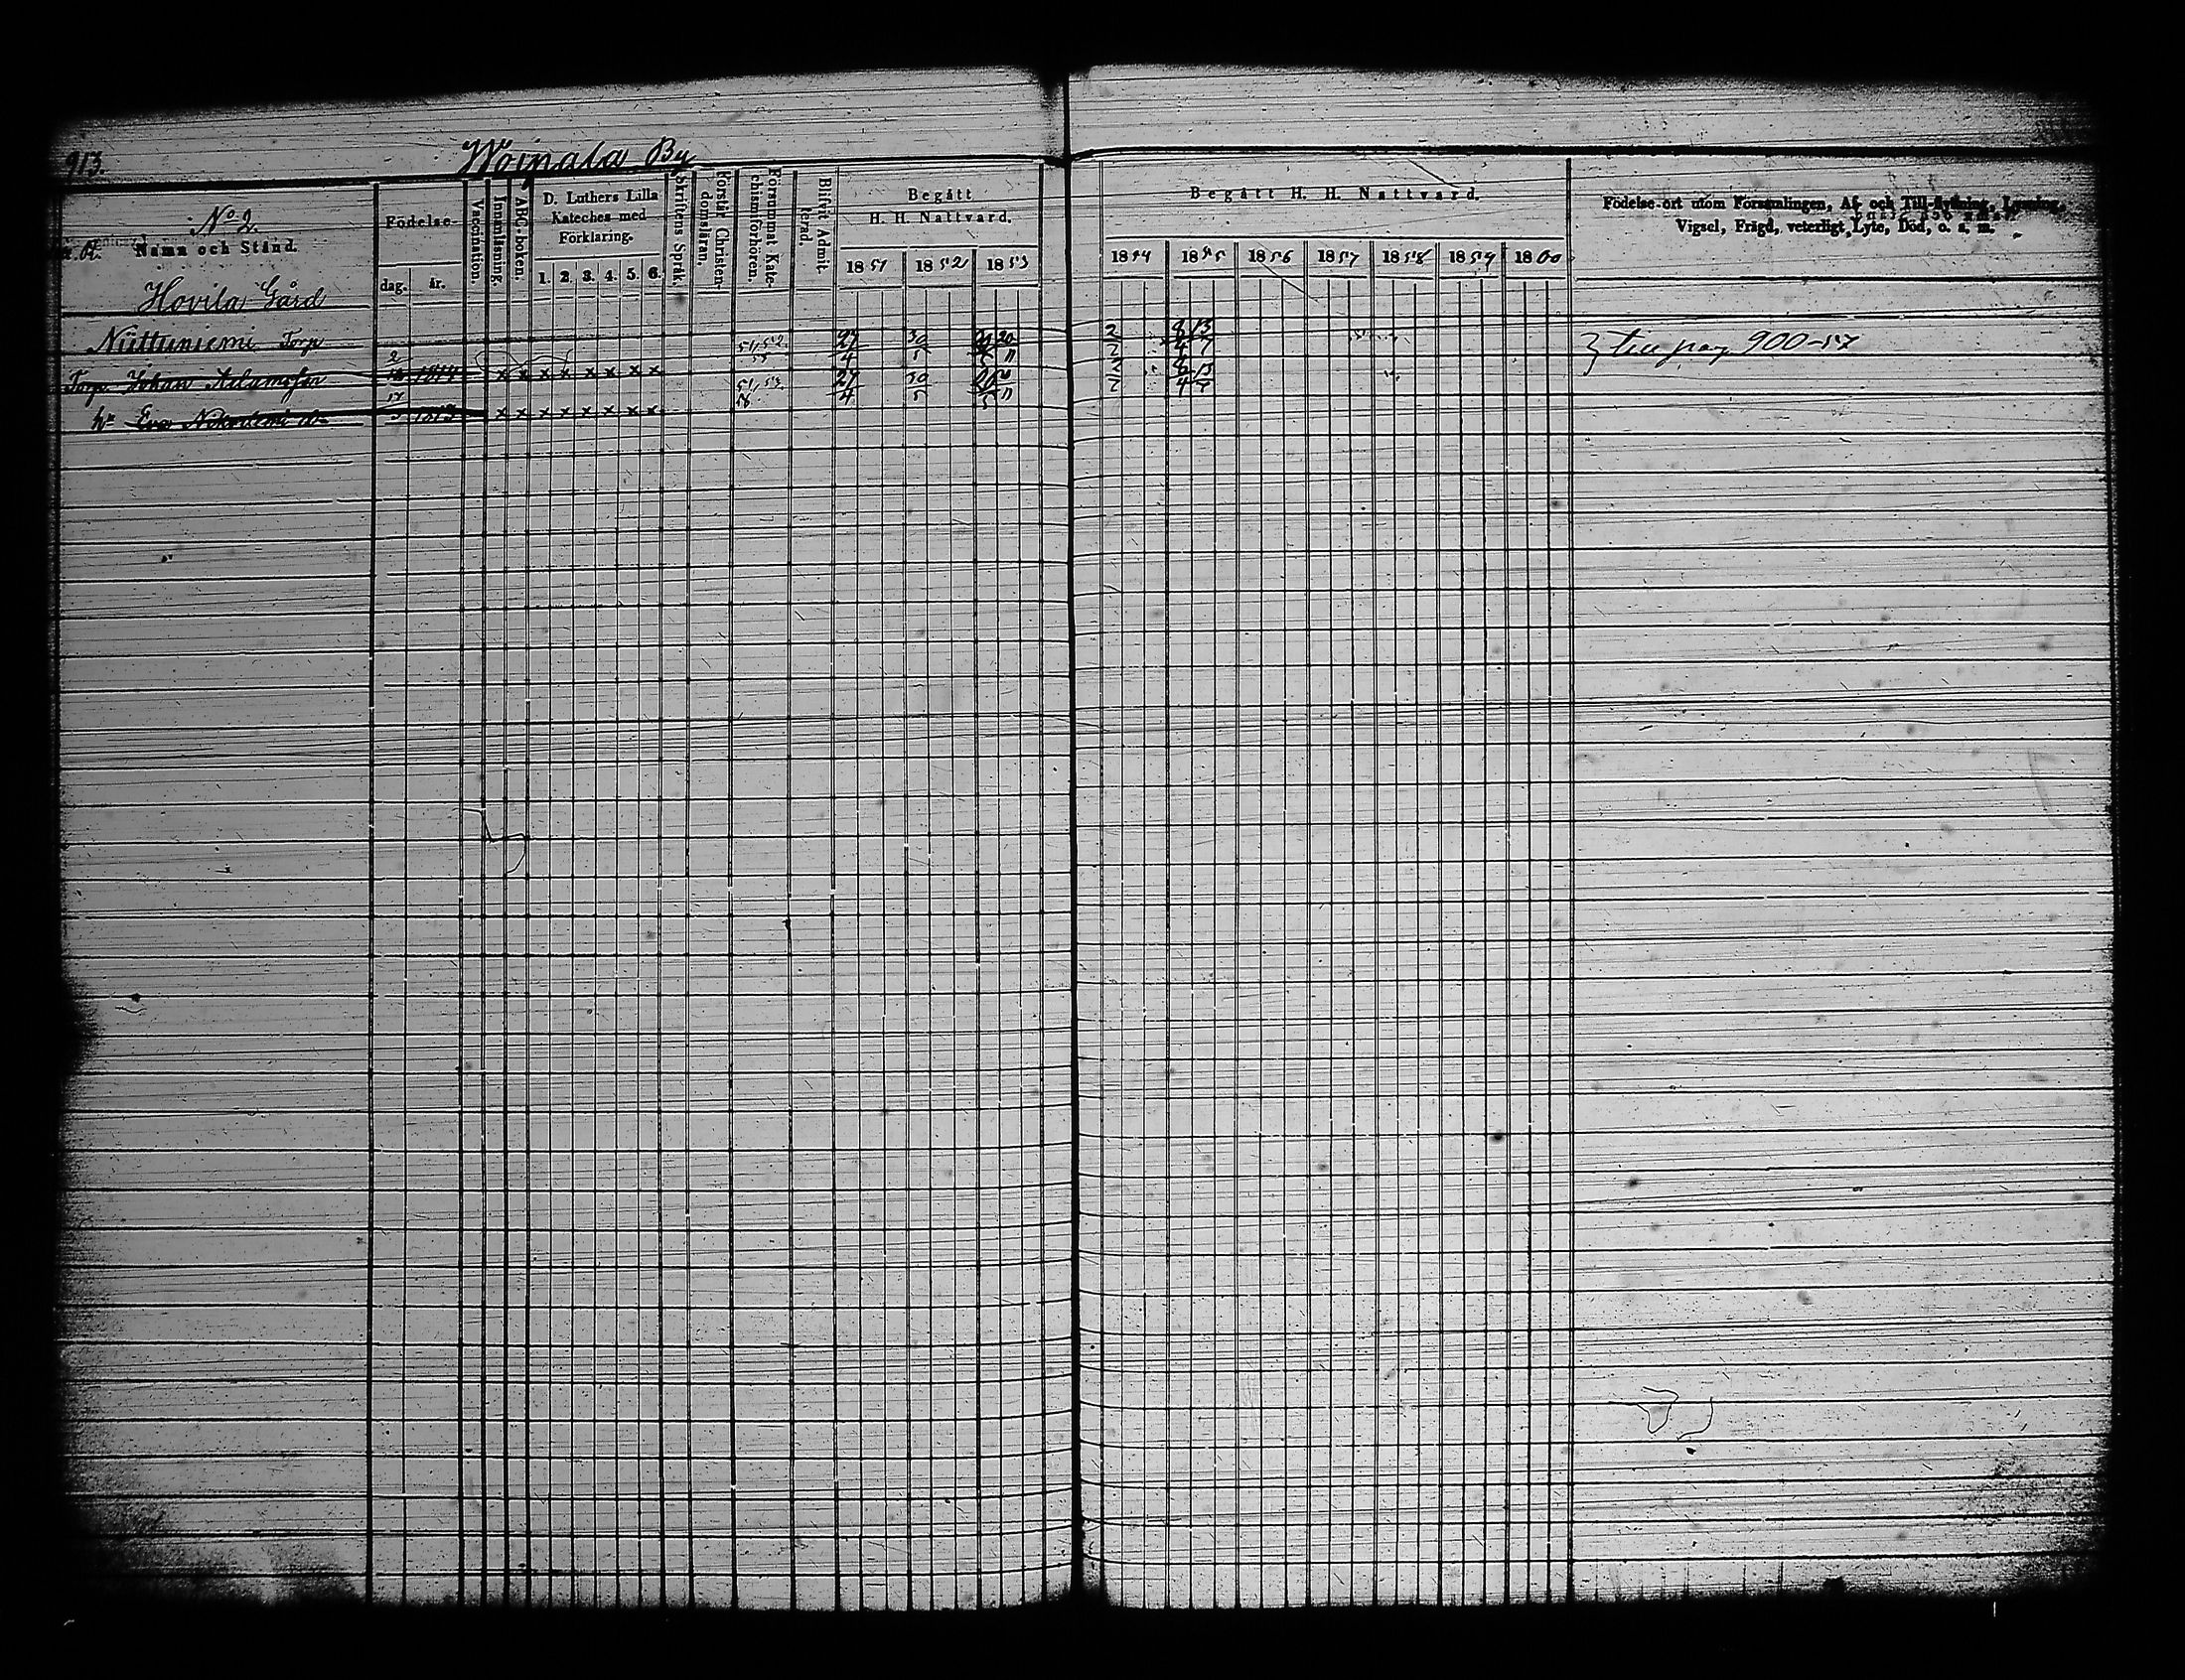 913.
Woipala By
No 2.
Namn och Stånd.
Födelse-
dag. år.
Vaccination.
Innanläsning.
ABC-boken.
D. Luthers Lilla
Kateches med
Förklaring.
1. 2. 3. 4. 5. 6.
Skriftens Språk.
Förstår Christen-
domsläran.
Försummat Kate-
chismiförhören.
Blifvit Admit-
terad.
Begått
H. H. Nattvard.
1851 1852 1853
Begått H. H. Nattvard.
1854 1855 1856 1857 1858 1859 1860
Födelse-ort utom Församlingen, Af- och Till-flyttning, Lysning,
Vigsel, Frägd, veterligt Lyte, Död, o. s. m.
Hovila Gård
Niittuniemi Torp
Torp. Johan Adamsson 2 1814 x x x x x x x x 51,52 53 27/4 30/5 20/11 2 8/4 13/7 } till pag 900-57
hu Eva 17/5 1813 x x x x x x x x 51,52 27/4 30/5 8/4 13/7